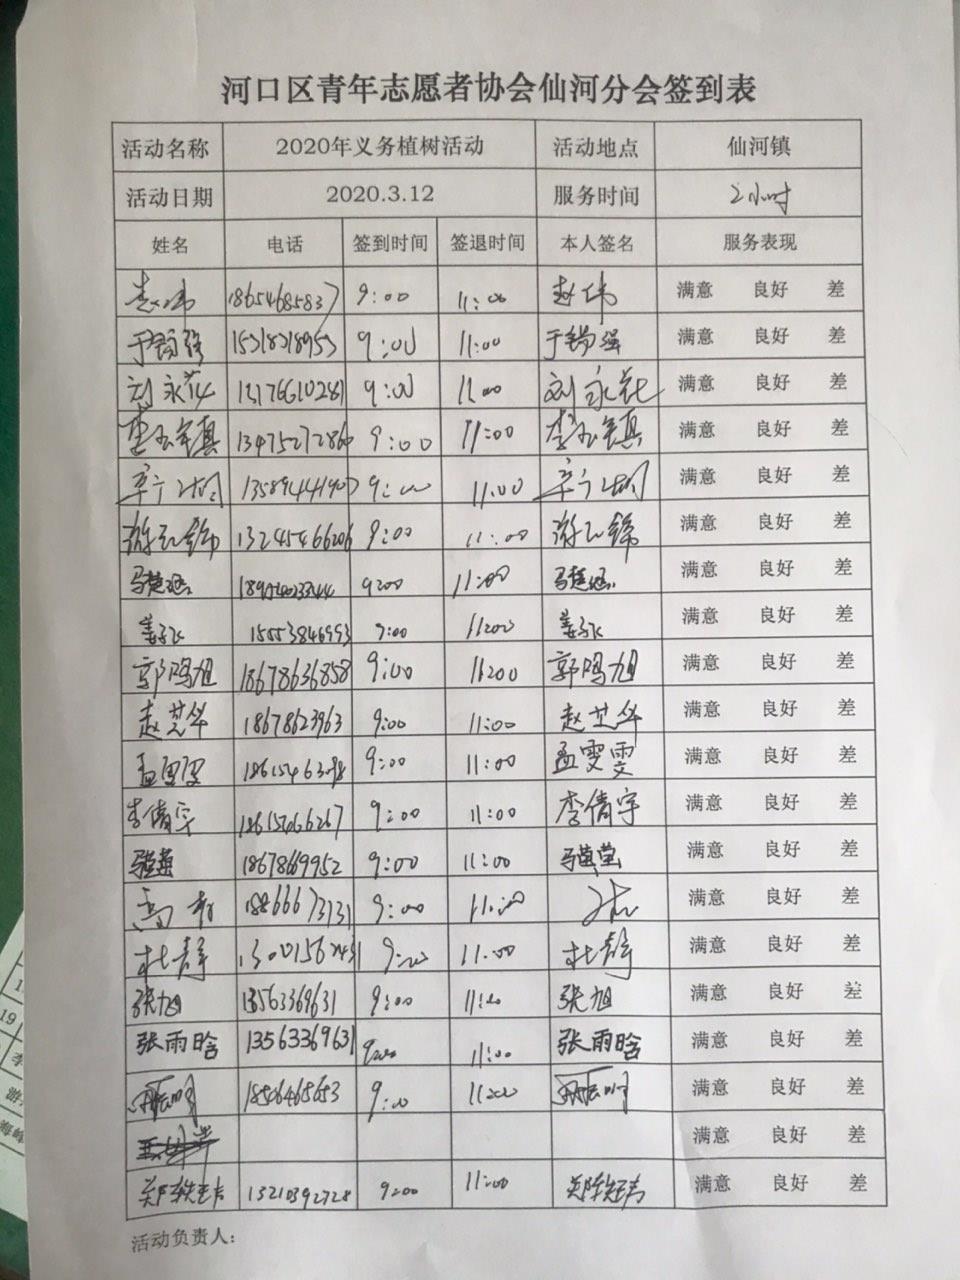 河口区青年志愿者协会仙河分会签到表
活动名称 2020年义务植树活动 活动地点 仙河镇
活动日期 2020.3.12 服务时间 2小时
姓名 电话 签到时间 签退时间 本人签名 服务表现
赵伟 18654685837 9:00 11:00 赵伟 满意 良好 差
15318318953 9:00 11:00 满意 良好 差
刘永花 13176610281 9:00 11:00 刘永花 满意 良好 差
9:00 11:00 满意 良好 差
9:00 11:00 满意 良好 差
13245466206 9:00 11:00 满意 良好 差
9:00 11:00 满意 良好 差
姜飞 15553846993 9:00 11:00 姜飞 满意 良好 差
郭鸣旭 18678636858 9:00 11:00 郭鸣旭 满意 良好 差
赵芝华 18678623963 9:00 11:00 赵芝华 满意 良好 差
孟雯雯 9:00 11:00 孟雯雯 满意 良好 差
李倩宇 18615466267 9:00 11:00 李倩宇 满意 良好 差
9:00 11:00 满意 良好 差
18866673131 9:00 11:00 满意 良好 差
杜静 9:00 11:00 杜静 满意 良好 差
张旭 13563369631 9:00 11:00 张旭 满意 良好 差
张雨晗 13563369631 9:00 11:00 张雨晗 满意 良好 差
18546465653 9:00 11:00 满意 良好 差
满意 良好 差
13210392728 9:00 11:00 满意 良好 差
活动负责人：